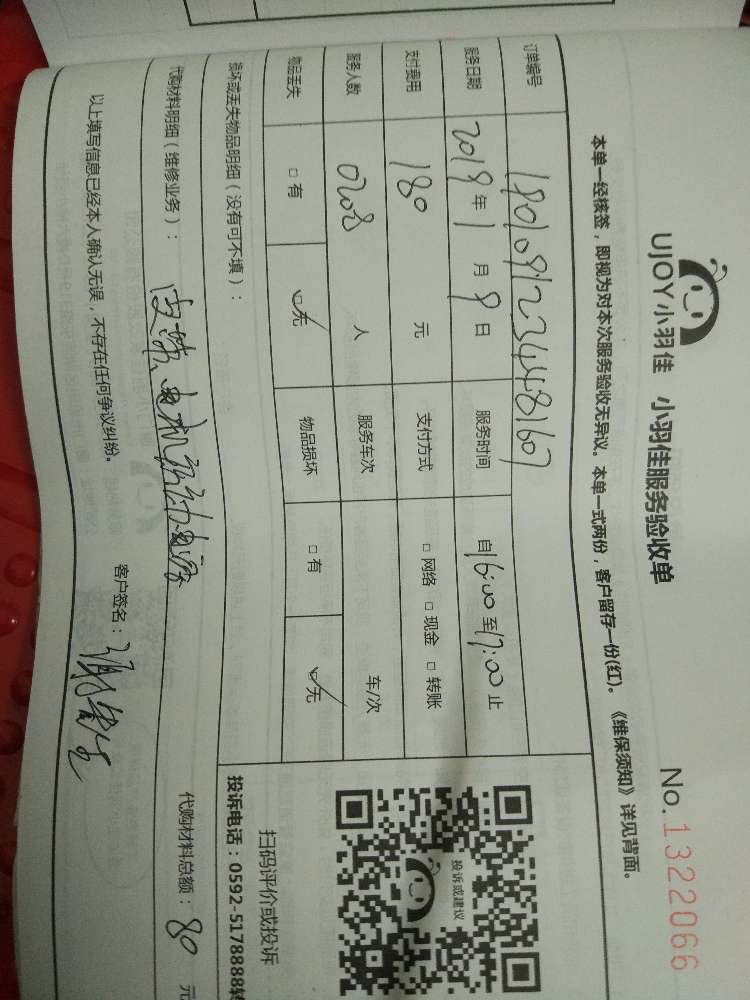 UJOY小羽佳 小羽佳服务验收单
No.1322066
本单一经核签，即视为对本次服务验收无异议。本单一式两份，客户留存一份(红)。《维保须知》详见背面。
订单编号 180109123448167
服务日期 2018年1月9日 服务时间 自16:00至17:00止
支付费用 180元 支付方式 □网络 □现金 □转账
服务人数 0208 人 服务车次 车/次
物品丢失 □有 ☑无 物品损坏 □有 ☑无
投诉或建议
扫码评价或投诉
投诉电话：0592-5178888转
损坏或丢失物品明细（没有可不填）：
代购材料明细（维修业务）： 代购材料总额：80元
以上填写信息已经本人确认无误，不存在任何争议纠纷。
客户签名：